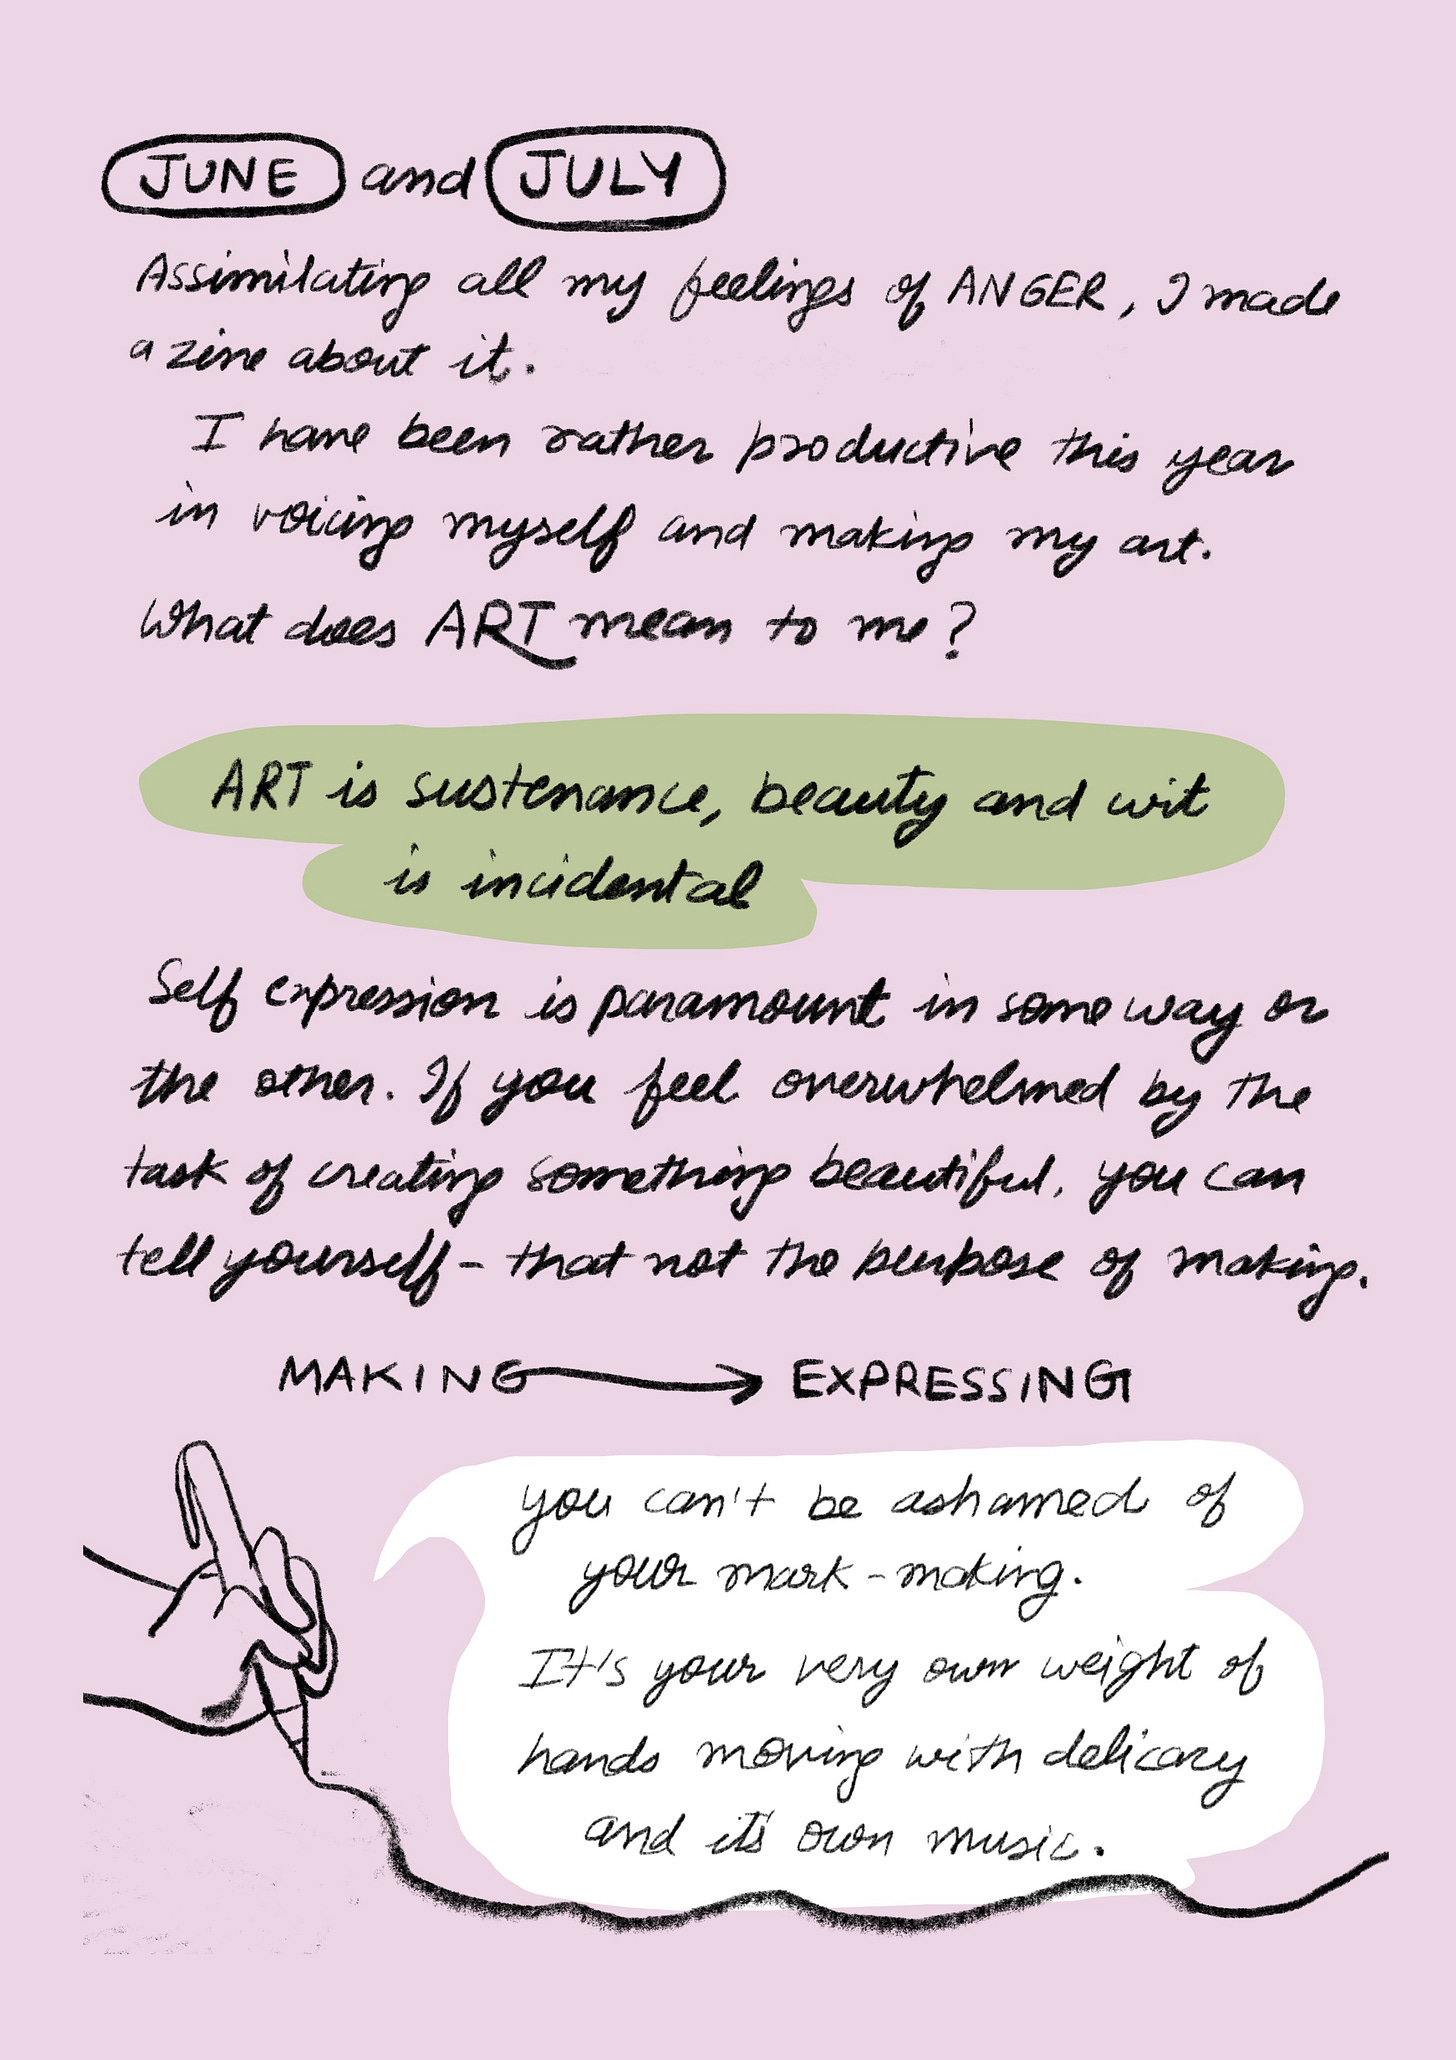 JUNE and JULY
Assimilating all my feelings of ANGER, I made
a zine about it.
I have been rather productive this year
in voicing myself and making my art.
What does ART mean to me?
ART is sustenance, beauty and wit
is incidental
Self expression is paramount in some way or
the other. If you feel overwhelmed by the
task of creating something beautiful, you can
tell yourself - that not the purpose of making.
MAKING → EXPRESSING
you can't be ashamed of
your mark-making.
It's your very own weight of
hands moving with delicacy
and it's own music.